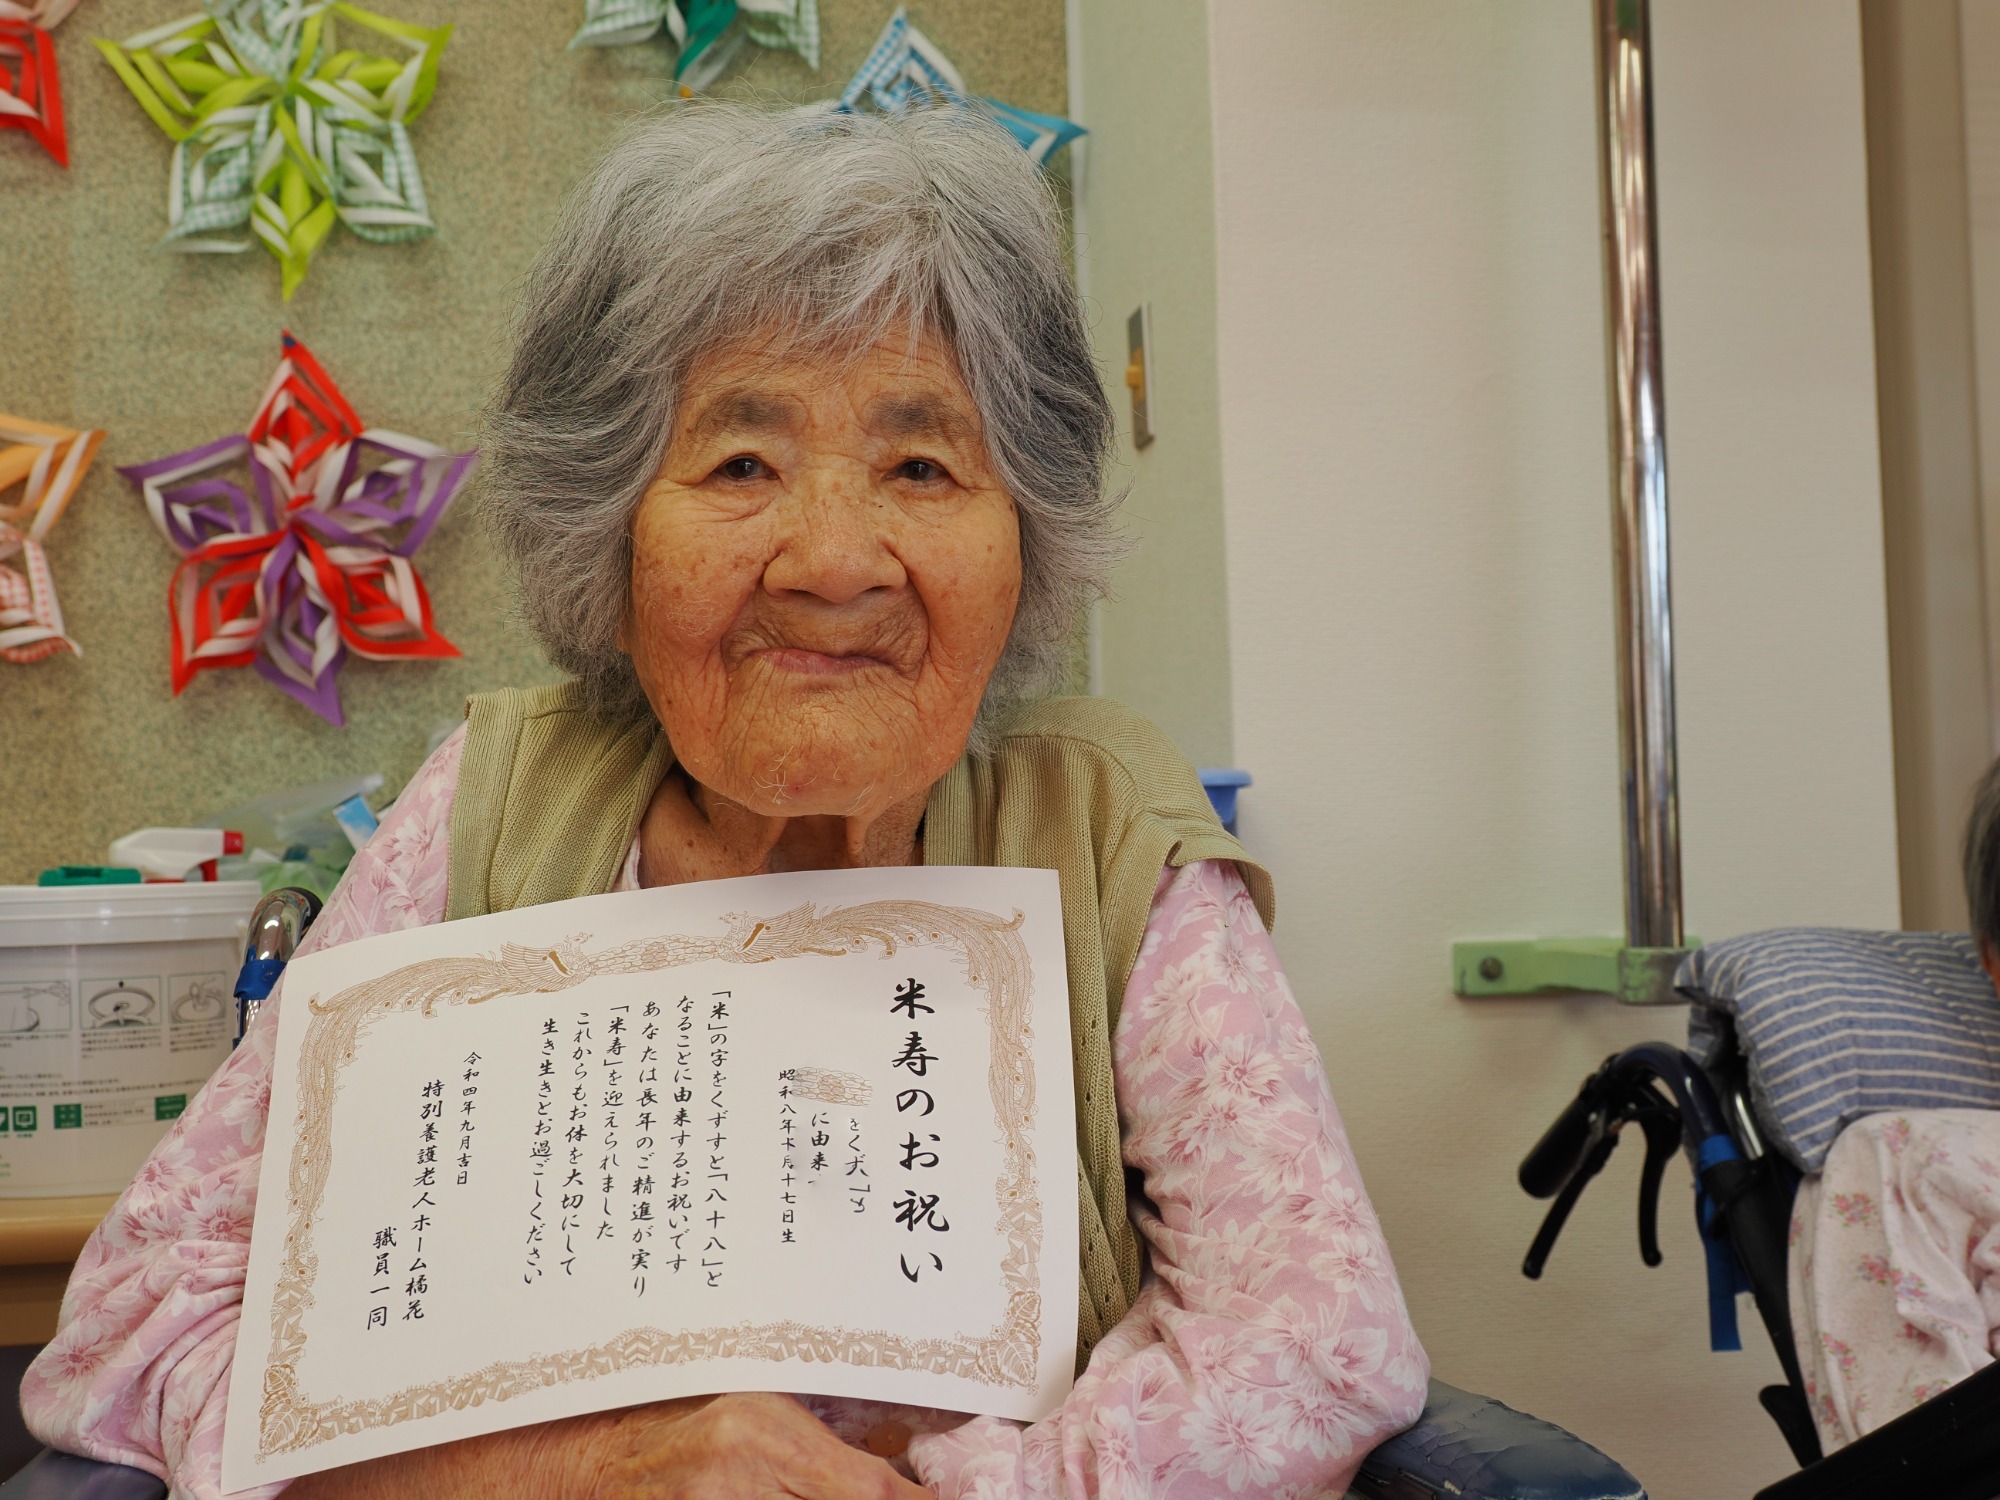 米寿のお祝い
をくず
に由来
昭和八年
月十七日生
「米」の字をくずすと「八十八」と
なることに由来するお祝いです
あなたは長年のご精進が実り
「米寿」を迎えられました
これからもお体を大切にして
生き生きとお過ごしください
令和四年九月吉日
特別養護老人ホーム橘花
職員一同